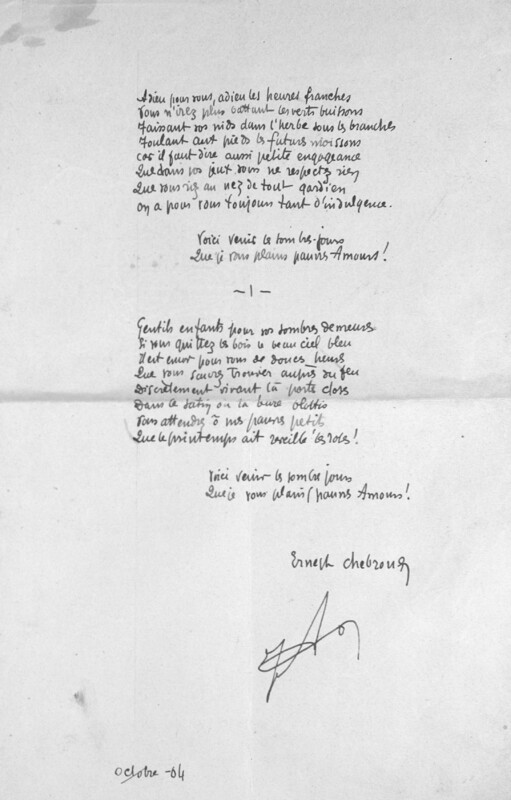 Adieu pour vous, adieu les heures franches
Vous n'irez plus battant les verts buissons
Faisant vos nids dans l'herbe sous les branches
Foulant aux pieds les futurs moissons
car il faut dire aussi petite engageance
Que dans vos jeux vous ne respectez rien
Que vous riez au nez de tout gardien
on a pour vous toujours tant d'indulgence.
Voici venir les sombres jours
Que je vous plains pauvres Amours!
—1—
Gentils enfants pour vos sombres demeures
Si vous quittez les bois le beau ciel bleu
Il est encor pour vous de douces heures
Que vous saurez trouver auprès du feu
Discrètement vivant là porte close
Dans le satin ou la bure
Vous attendrez ô mes pauvres petits
Que le printemps ait reveillé les roses!
Voici venir les sombre jours
Que je vous plains pauvres Amours!
Ernest Chebroux
octobre -04